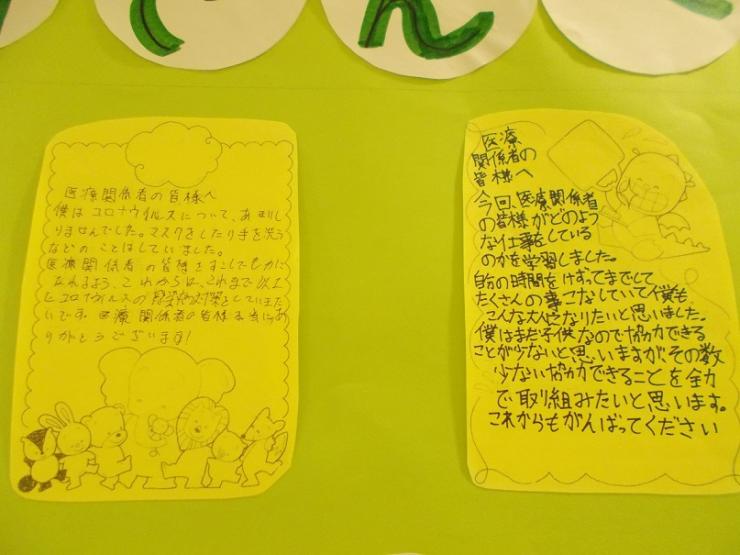 ん
医療関係者の皆様へ
僕はコロナウイルスについて、あまりし
りませんでした。マスクをしたり手を洗う
などのことはしていました。
医療関係者の皆様をすこしでもかに
なれるよう、これからは、これまで以上
にコロナウイルスの感染対策をしていきた
いです。医療関係者の皆様本当にあ
りがとうございます!
医療
関係者の
皆様へ
今回、医療関係者
の皆様がどのよう
な仕事をしている
のかを学習しました。
自分の時間をけずってまでして
たくさんの事こなしていて僕も
こんな大人になりたいと思いました。
僕はまだ子供なので協力できる
ことが少ないと思いますが、その数
少ない協力できることを全力
で取り組みたいと思います。
これからもがんばってください